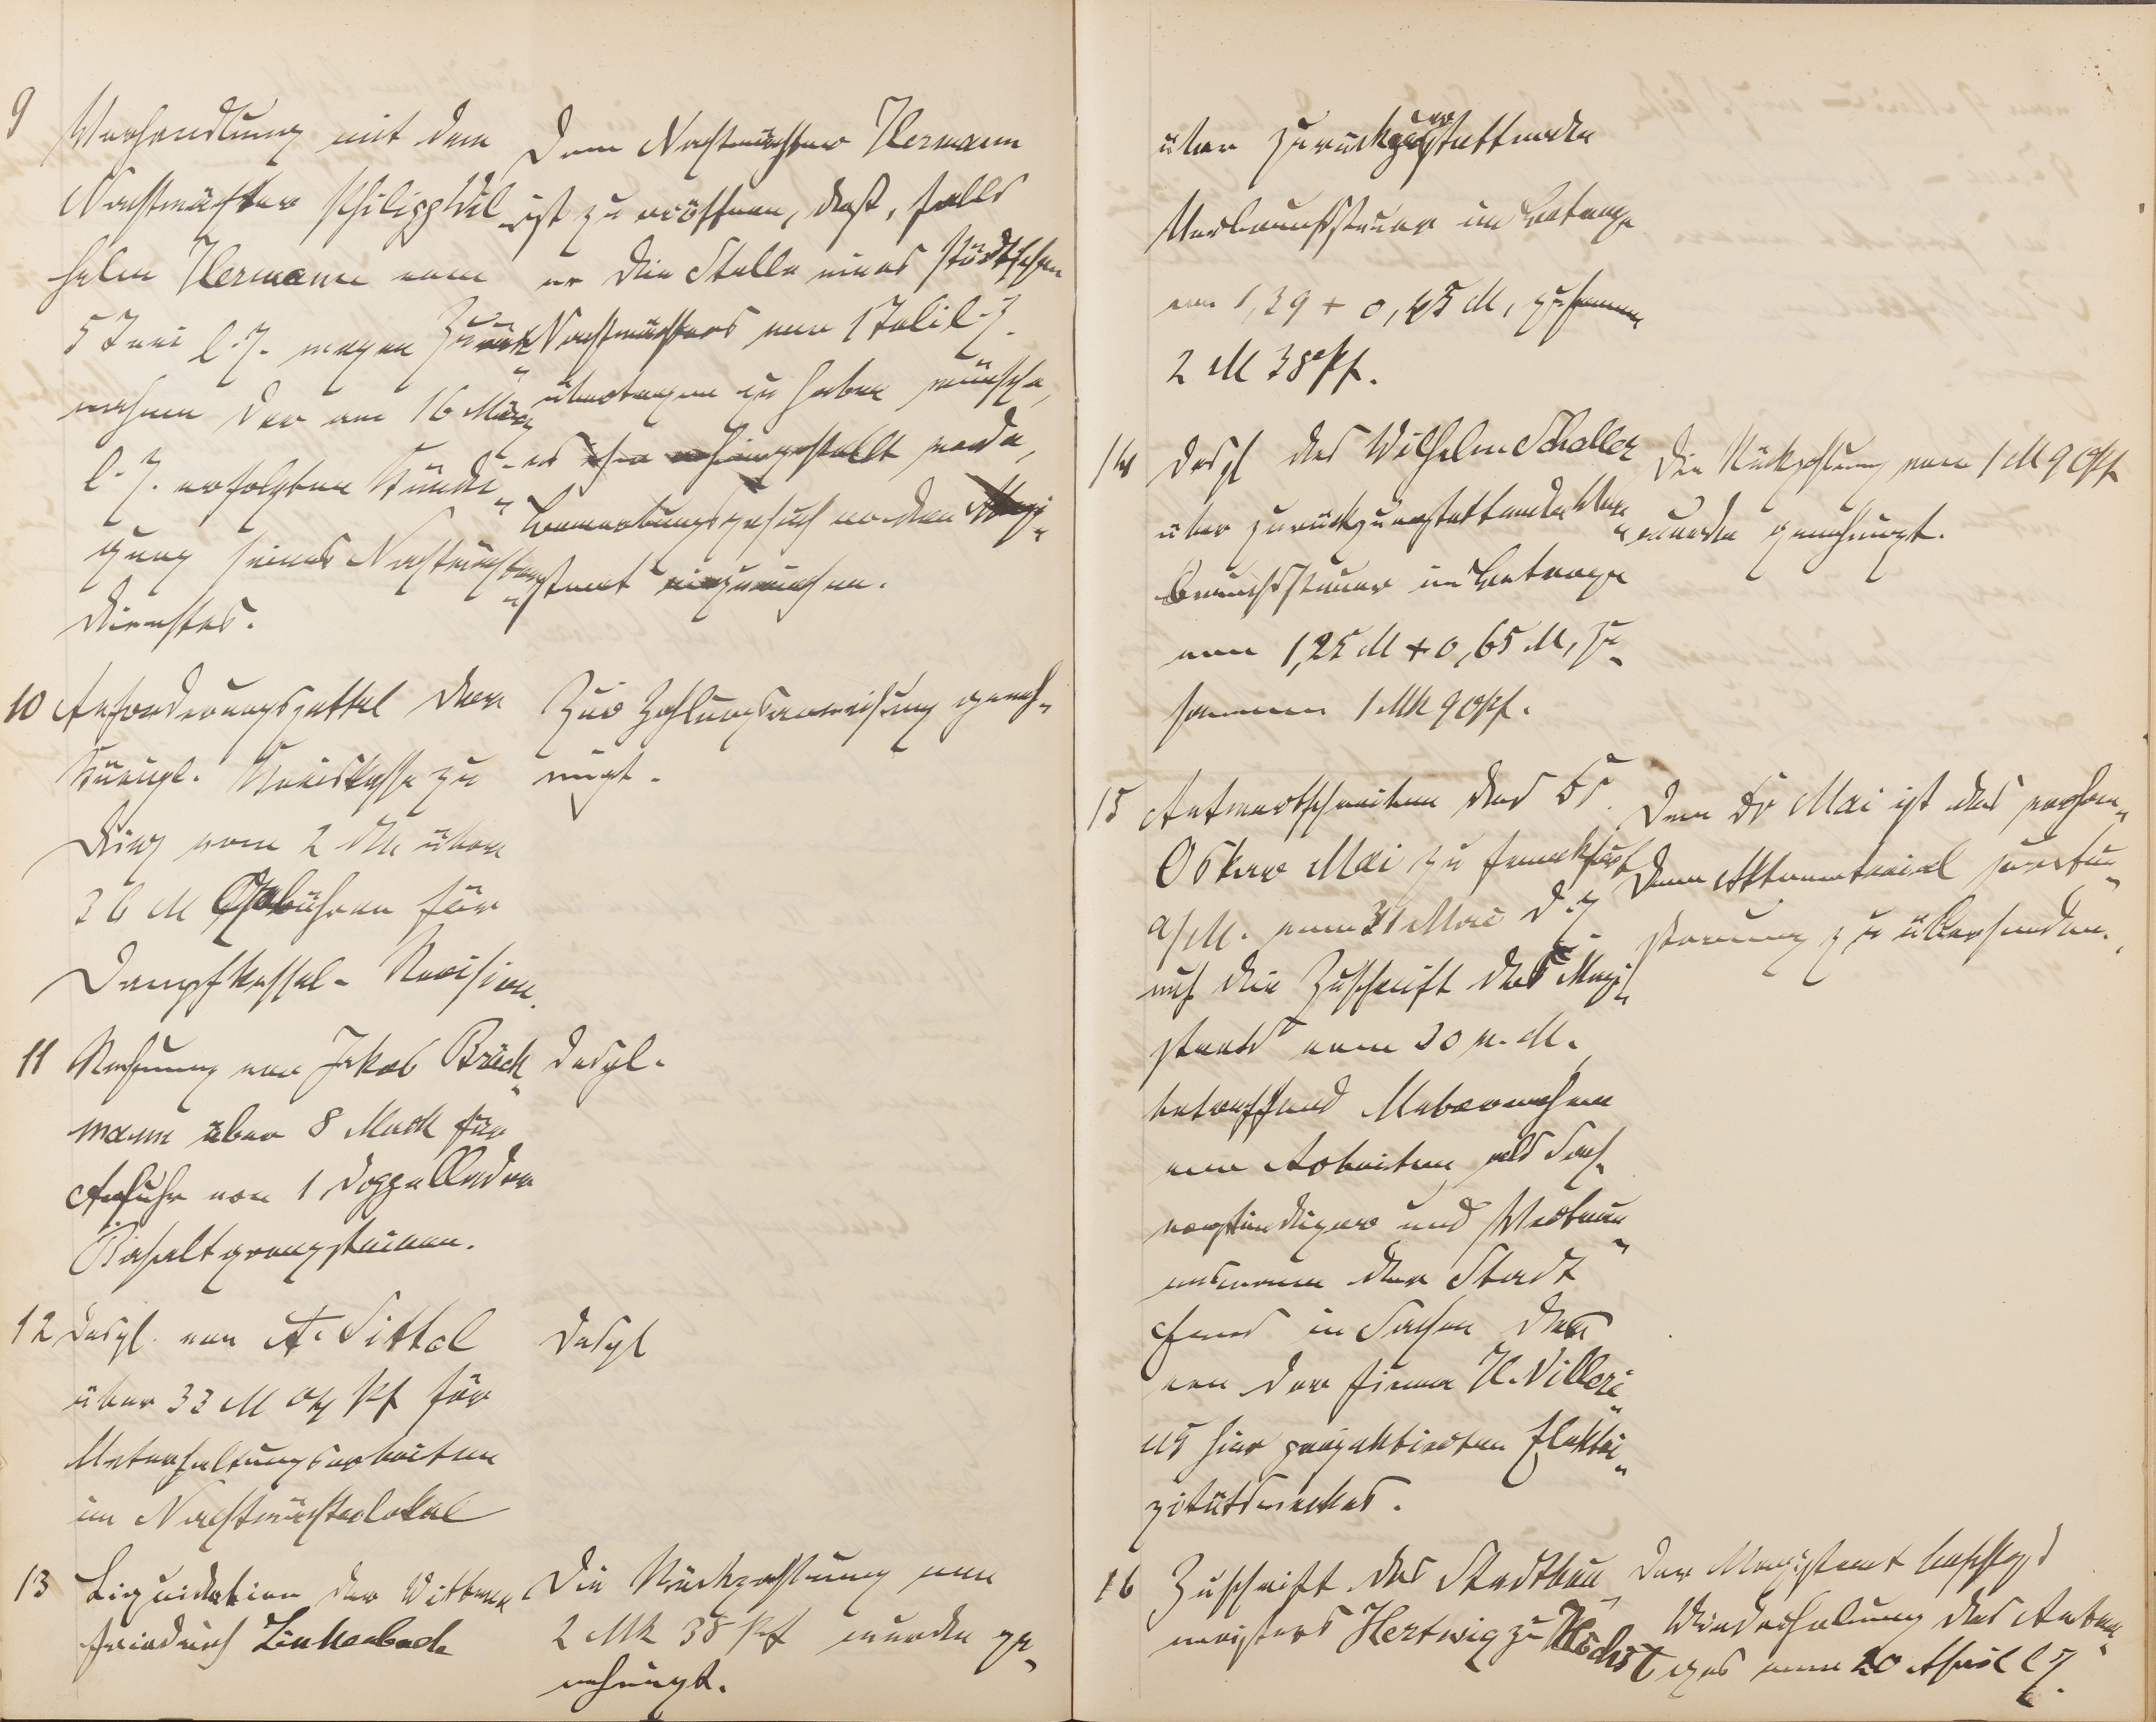 9 Verhandlung mit dem
Nachtwächter Philipp Wil
helm Hermann vom
5 Juni l. J. wegen Zurück„
nahme der am 16 März
l. J. erfolgten Kündi„
gung seines Nachtwächter
dienstes.
Dem Nachtwächter Hermann
ist zu eröffnen, daß, falls
er die Stelle eines städtischen
Nachtwächters vom 1 Juli l. J.
übertragen zu haben wünsche,
es ihm anheimgestellt werde,
Bewerbungsgesuch an den Magi„
strat einzureichen.
10 Anforderungszettel der
Königl. Kreiskasse zu
Diez vom 2 über
36 M Gebühren für
Dampfkessel-Revision.
Zur Zahlungsanweisung geneh„
migt.
11 Rechnung von Jakob Brück„
mann über 8 Mark für
Anfuhr von 1 Doppellader
Basaltgrenzsteinen.
desgl.
12 desgl. von A. Sittel
über 33 M 04 Pf für
Unterhaltungsarbeiten
im Nachtwächterlokal
desgl
13 Liquidation der Wittwe
Friedrich Linkenbach
Die Rückzahlung von
2 Mk 38 Pf wurde ge„
nehmigt.
über zurückzuerstattende
Verbrauchssteuer im Betrage
von 1,39 + 0, M, zusammen
2 M 38 Pf.
14 desgl des Wilhelm Schaller
über zurückzuerstattende Ver„
brauchssteuer im Betrage
von 1,25 M + 0,65 M, zu„
sammen 1 Mk 90 Pf.
Die Rückzahlung von 1 M 90 Pf
wurde genehmigt.
15 Antwortschreiben des Dr.
Oskar Mai zu Frankfurt
a/M. vom 31 Mai d. J.
auf die Zuschrift des Magi„
strats vom 30 v. M.
betreffend Uebernahme
von Arbeiten als Sach„
verständiger und Vertrau„
ensmann der Stadt
Ems in Sachen des
von der Firma H. Villeri„
us hier projektierten Elektri„
zitätswerkes.
Dem Dr Mai ist das vorhan„
dene Aktenmaterial
zu übersenden.
16 Zuschrift des Stadtbau„
meisters Hertwig zu Höchst
Der Magistrat beschließt
Wiederholung des Antra„
ges vom 20 April l. J.